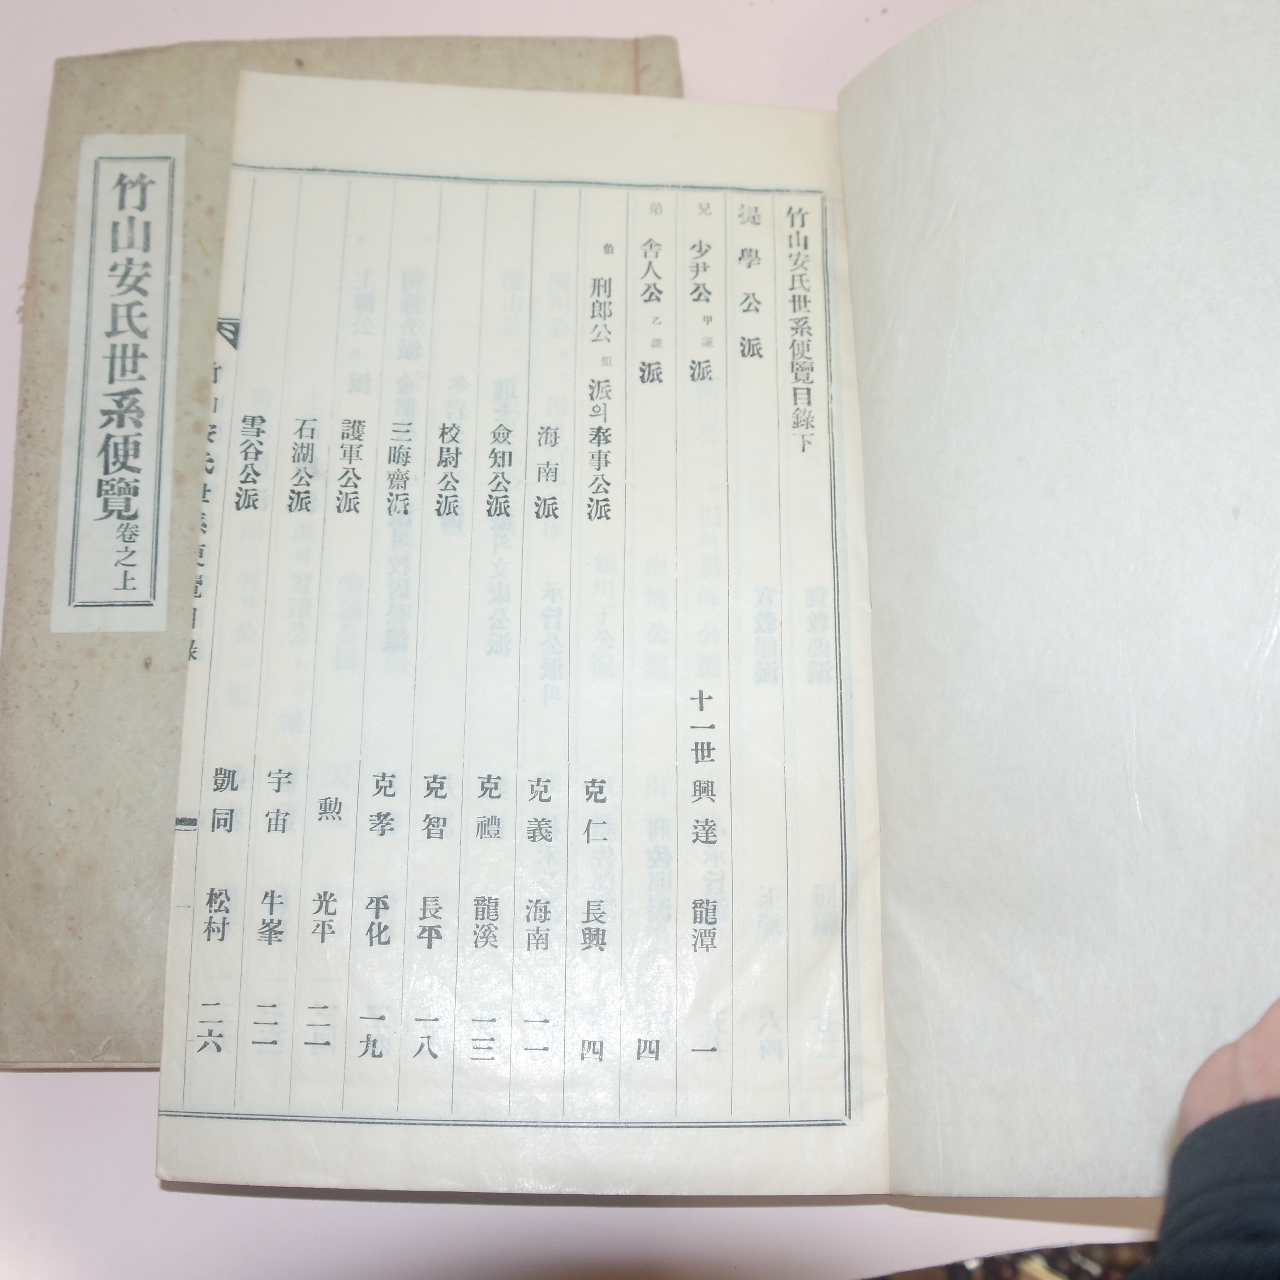 竹山安氏世系便覽 卷之上
竹山安氏世系便覽目錄下
提學公派
兄 少尹公 甲謙 派 十一世 興達 龍潭 一
弟 舍人公 乙謙 派 四
刑郎公 派의 奉事公派 克仁 長興 四
海南派 克義 海南 一一
僉知公派 克禮 龍溪 一三
校尉公派 克智 長平 一八
三晦齋派 克孝 平化 一九
護軍公派 勲 光平 二一
石湖公派 宇宙 牛峯 二二
雪谷公派 凱同 松村 二六
竹山安氏世系便覽目錄 一